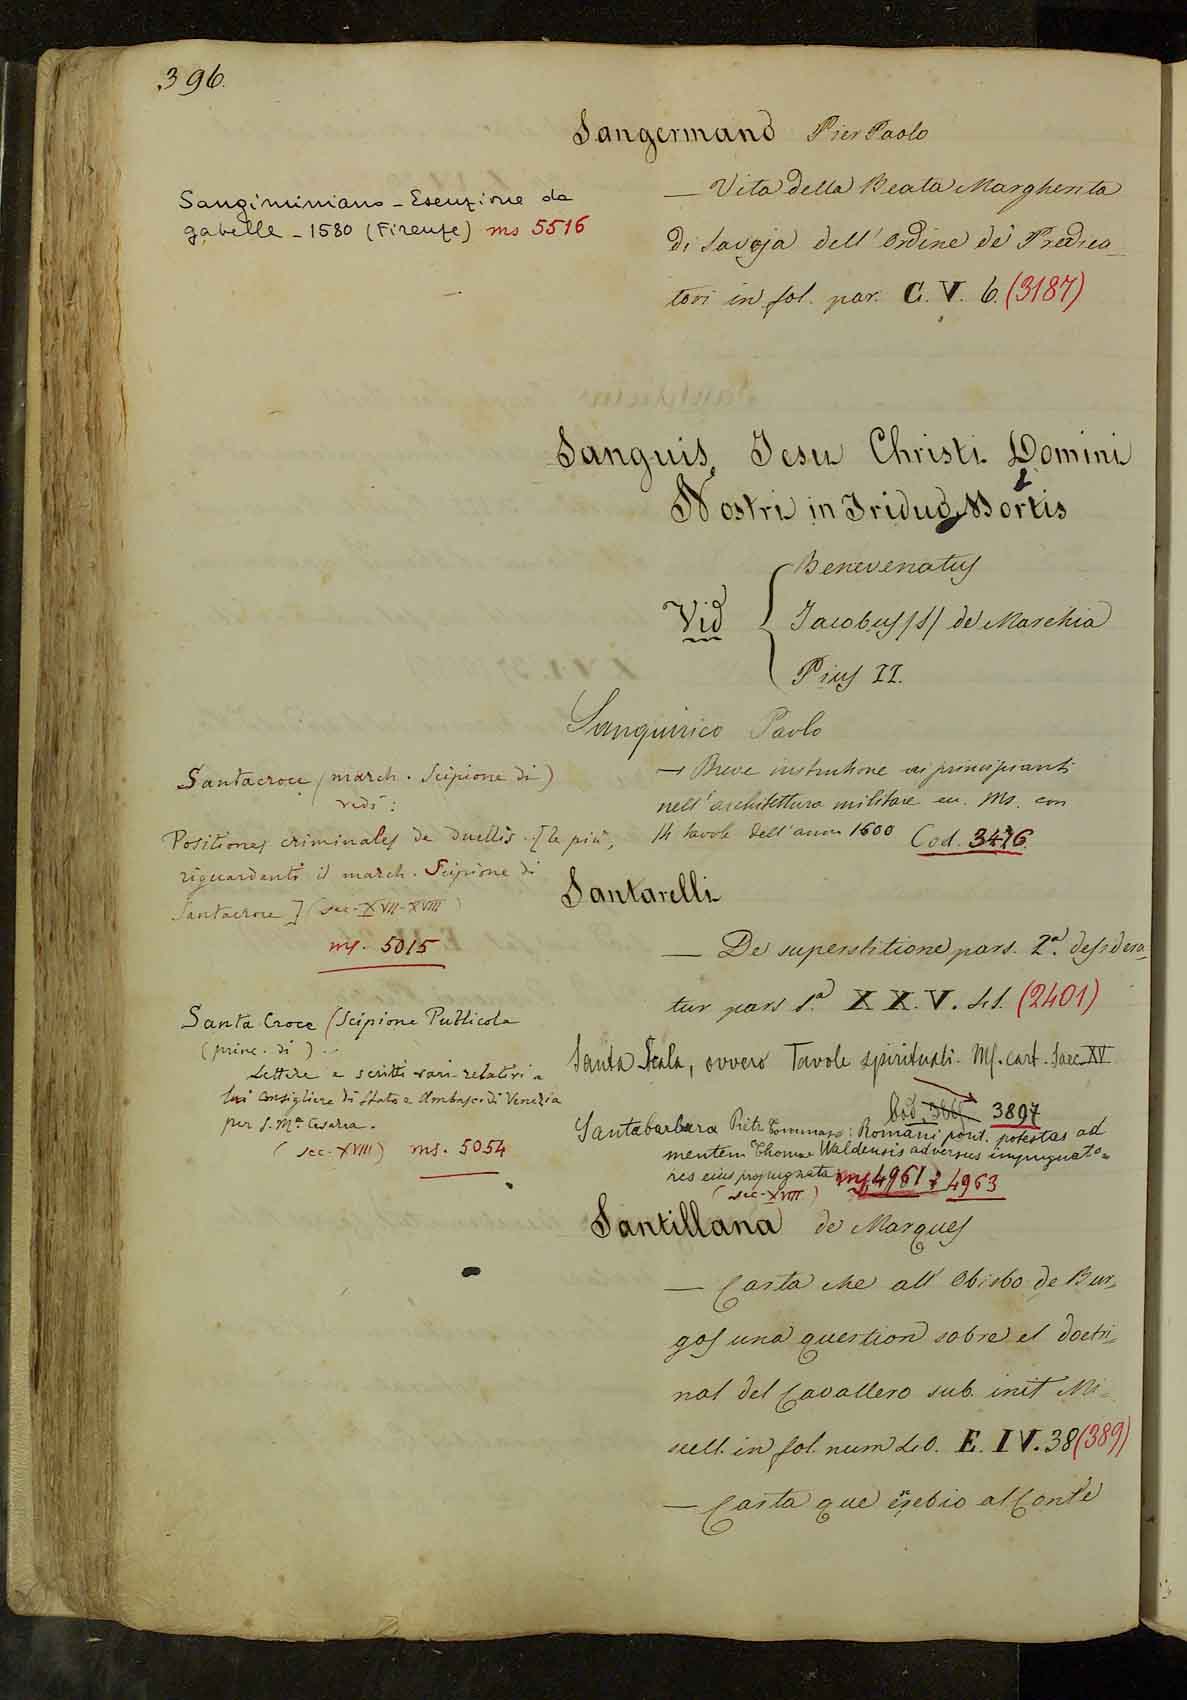 396.
Sangermano Pier Paolo
— Vita della Beata Margherita
di Savoja dell' Ordine de' Predica-
tori in fol. par. C. V. 6. (3187)
Sangiminiano - Esenzione da
gabelle - 1580 (Firenze) ms 5516
Sanguis Jesu Christi Domini
Nostri in Triduo Mortis
Vid
Benevenatus
Jacobus /S/ de Marchia
Pius II.
Sanquirico Paolo
— Breve instrutione ai principianti
nell' architettura militare Ms. con
14 tavole dell' anno 1600 Cod. 3476
Santacroce (march. Scipione di)
vedi:
Positiones criminales de Duellis [le più,
riguardanti il march. Scipione di
Santacroce] (sec. XVII-XVIII)
ms. 5015
Santarelli
— De superstitione pars. 2.a deside ra-
tur pars 1.a X X. V. 41. (2401)
Santa Croce (Scipione Publicola
(princ. di) -
Lettere e scritti vari relativi a
lui Consigliere di Stato e Ambasc. di Venezia
per S. Mª Cesarea.
(sec. XVIII) ms. 5054
Santa Scala, ovvero Tavole spirituali. Ms. cart. Saec. XV
Cod. 3897
Santabarbara Pietr. Tommaso: Romani pont. potestas ad
mentem Thomae Waldensis adversus impugnato=
res eius propugnata ms 4961 : 4963
(sec. XVIII)
Santillana de Marques
— Carta che all' Obisbo de Bur-
gos una question sobre el doctri-
nal del Cavallero sub. init Mi-
scell. in fol. num 40. E. IV. 38 (389)
— Carta que esebio al Conte